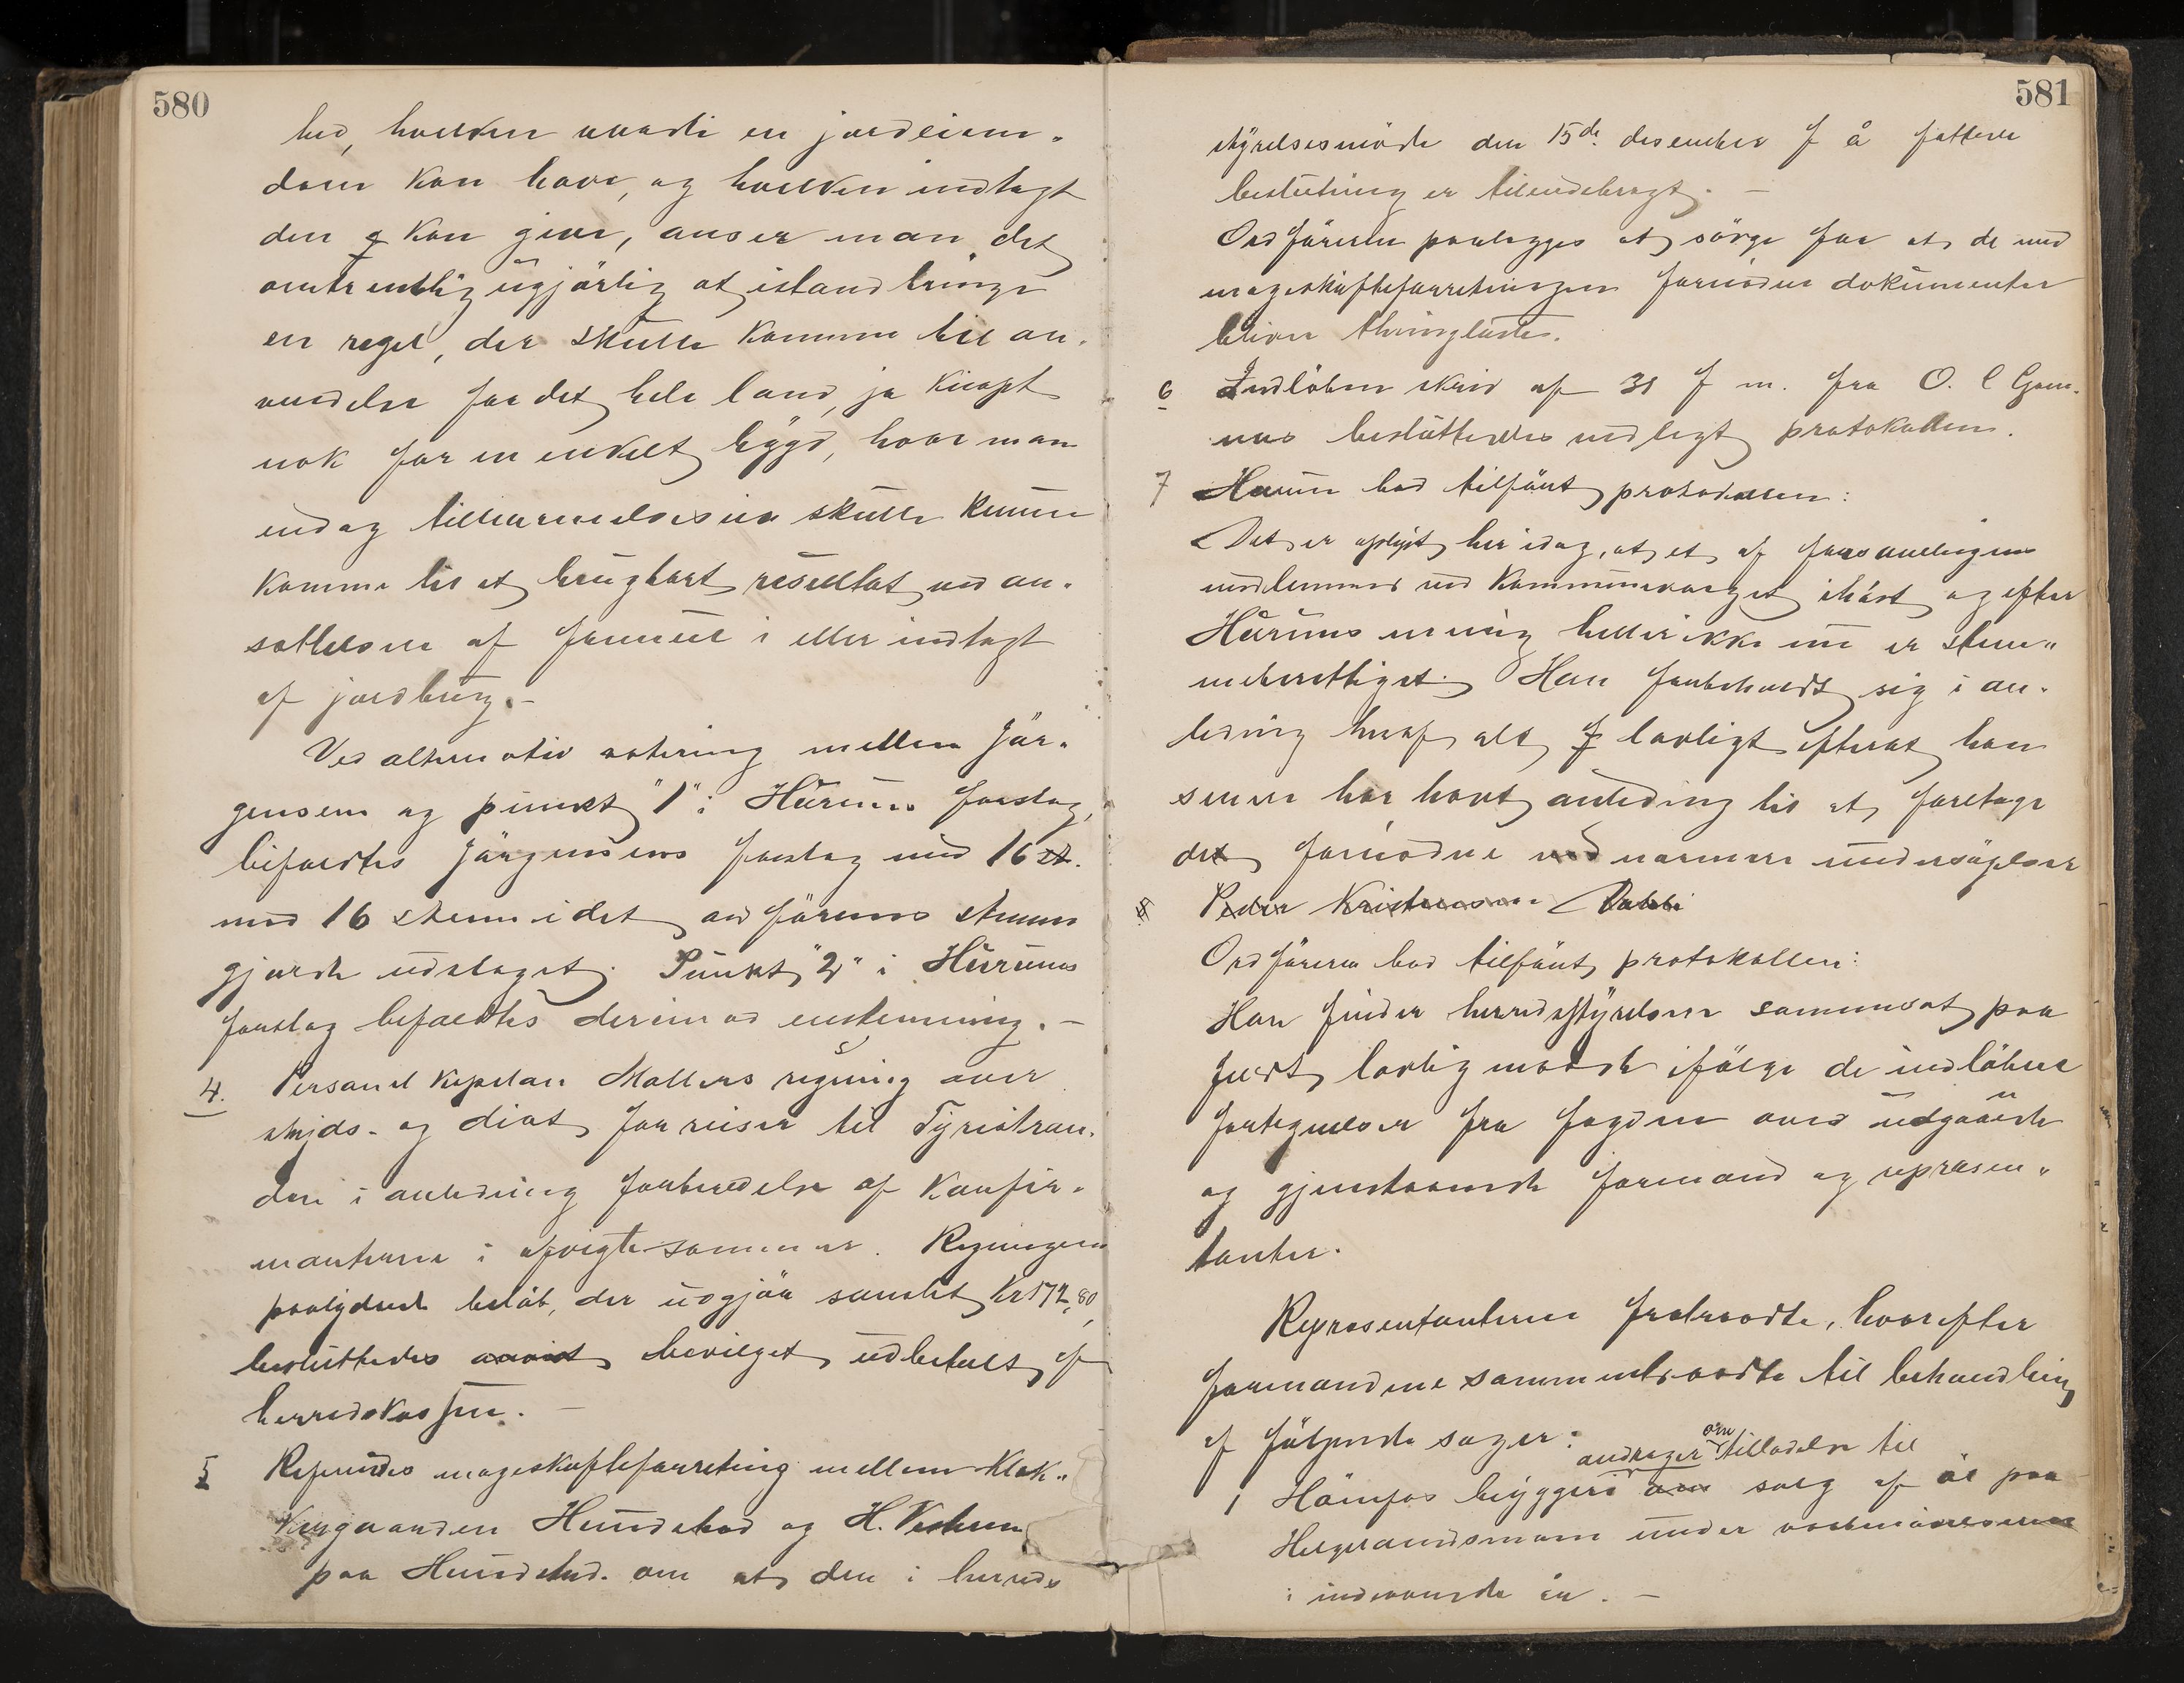 580
hed, hvilken værdi en jordeien-
dom kan have, og hvilken indtægt
den kan give, anser man det
omtrentlig ugjörlig at istandbringe
en regel, der skulle komme til an-
vendelse for det hele land, ja knapt
nok for en enkelt bygd, hvor man
endog skulle kunne
komme til et brugbart resultat ved an-
sættelsen af formue i eller indtægt
af jordbrug.-
Ved alternativ votering mellem Jör-
gensens og punkt "1" i Hurums forslag,
bifaldtes Jörgensens forslag med 16 st.
mod 16 stemm idet ordförerens stemme
gjorde udslaget. Punkt "2" i Hurums
forslag bifaldtes derimod enstemmig.-
4. Personel kapellan Møllers regning over
skyds- og diæt for reiser til Tyristran-
den i anledning forberedelse af konfir-
manterne i afvigte sommer. Regningens
paalydende beløb, der udgjör samlet Kr 172,80,
besluttedes anvist bevilget udbetalt af
herredskassen.-
5 Refereredes mageskifteforretning mellem Klok-
kergaarden Hundstad og H. Vestern
paa Hundstad. om at den i herreds
581
styrelsesmöde den 15de desember f å fattede
beslutning er tilendebragt.-
Ordföreren paalægges at sörge for at de med
mageskifteforretningen fornödne dokumenter
bliver thinglæste.
6 Indløben skriv af 31 f m. fra O. C Gom-
nes besluttedes vedlagt protokollen.
7 Hurum bad tilfört protokollen:
Det er oplyst her idag, at et af forsamlingens
medlemmer ved kommunevalget ihöst og efter
Hurums mening heller ikke nu er stem-
meberettiget. Han forbeholdt sig i an-
ledning heraf alt lovligt efterat han
senere har havt anledning til at foretage
det fornödne ved nærmere undersögelser
8 Peder Kristensen Dahli
Ordföreren bad tilfört protokollen:
Han finder herredsstyrelsen sammensat paa
fuldt lovlig maade ifölge de indløbne
fortegnelser fra fogden over udgaaede
og gjenstaaende formænd og repræsen-
tanter.
Repræsentanterne fratraadte, hvorefter
formændene sammentraadte til behandling
af fölgende sager:
andrager om tilladelse til
1 Hönefos bryggeri om salg af öl paa
Helgelandsmoen under vaabenövelserne
i indeværende år.-